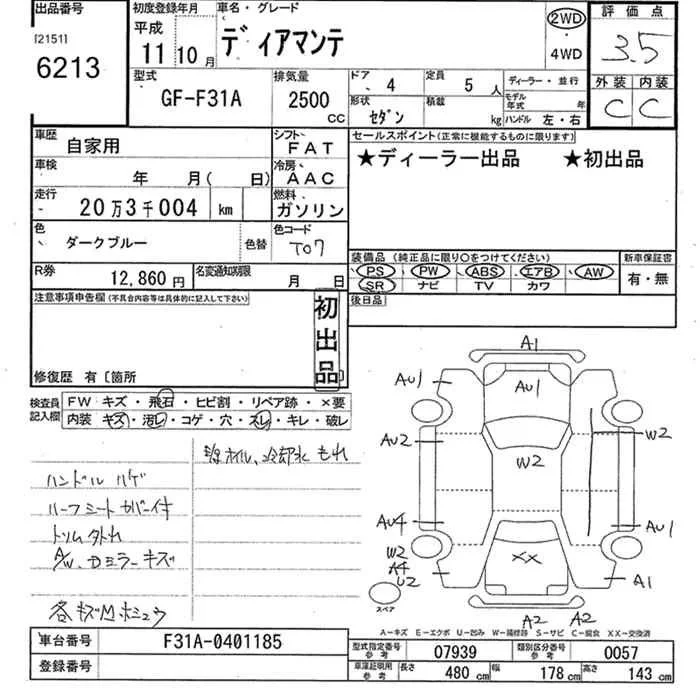 出品番号 初度登録年月 車名・グレード 評価点
[2151] 平成 ディアマンテ 2WD 3.5
6213 11 10月 ・ 4WD 外装 内装
型式 排気量 ドア 4 定員 5人 ディーラー・並行 C C
GF-F31A 2500 CC 形状 セダン 積載 kg モデル年式 年
ハンドル 左・右
車歴 自家用 シフト FAT セールスポイント(正常に機能するものに限ります)
車検 年 月( 日) 冷房 AAC ★ディーラー出品 ★初出品
走行 20万3千004 km 燃料 ガソリン
色 ダークブルー 色替 色コード T07
装備品 (純正品に限り○をつけてください) 新車保証書
R券 12,860円 名変通知期限 月 日 PS PW ABS エアB AW 有・無
SR ナビ TV カワ
注意事項申告欄(不具合内容等は具体的に記入して下さい) 初出品 後日品
修復歴 有 [箇所 ]
検査員記入欄 FW キズ・飛石・ヒビ割・リペア跡・×要
内装 キズ・汚レ・コゲ・穴・スレ・キレ・破レ
オイル、冷却水 もれ
ハンドル ハゲ
ハーフシート カバーイキ
トリム外れ
A/W、Dミラーキズ
各キズ
A1
AU1 AU1
AU2 W2 W2
AU4 AU1
W2 XX
A4 A1
U2
スペア A2 A2
A-キズ E-エクボ U-凹み W-補修跡 S-サビ C-腐食 XX-交換済
車台番号 F31A-0401185 型式指定番号 参考 07939 類別区分番号 参考 0057
登録番号 車庫証明用 参考 長さ 480 cm 幅 178 cm 高さ 143 cm